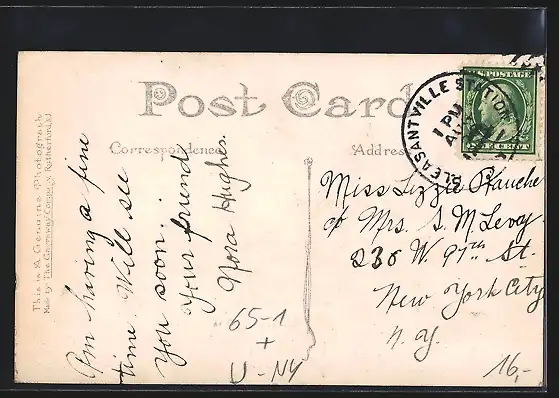 Post Card
Correspondence
Address
This is A Genuine Photograph
Made by The Garraway Company, Rutherford, N.J.
Am having a fine
time. Will see
you soon.
Your friend
Nora Hughes.
PLEASANTVILLE STATION
1 PM
U.S. POSTAGE
ONE CENT
Miss Lizzie Planche
% Mrs. S. M. Levey
236 W. 97th St.
New York City
N. Y.
65-1
+
U-NY
16,-